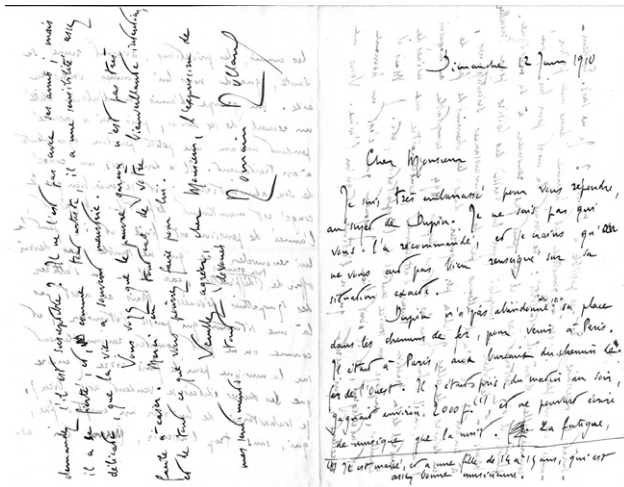 Dimanche 12 Juin 1910
Cher Monsieur
Je suis très embarrassé pour vous répondre,
au sujet de Dupin. Je ne sais pas qui
vous l'a recommandé, et je crains qu'on
ne vous ait pas bien renseigné sur sa
situation exacte.
Dupin n'a pas abandonné sa place
dans les chemins de fer, pour venir à Paris.
Il était à Paris, aux bureaux du chemin de
fer de l'Ouest. Il y était pris, du matin au soir,
gagnait environ 2.000 f. (1), et ne pouvait écrire
de musique que la nuit. La fatigue,
(1) Il est marié, et a une fille de 14 à 15 ans, qui est
assez bonne musicienne.
demandez s'il est susceptible? Il ne l'est pas avec ses amis; mais
il a sa fierté; et, comme tout artiste, il a une sensibilité assez
délicate, que la vie a souvent meurtrie.
Vous voyez que le pauvre garçon n'est pas très
facile à caser. Merci en tout cas de votre bienveillante intention,
et de tout ce que vous pourrez faire pour lui.
Veuillez agréer, cher Monsieur, l'expression de
mes sentiments tout dévoués
Romain Rolland